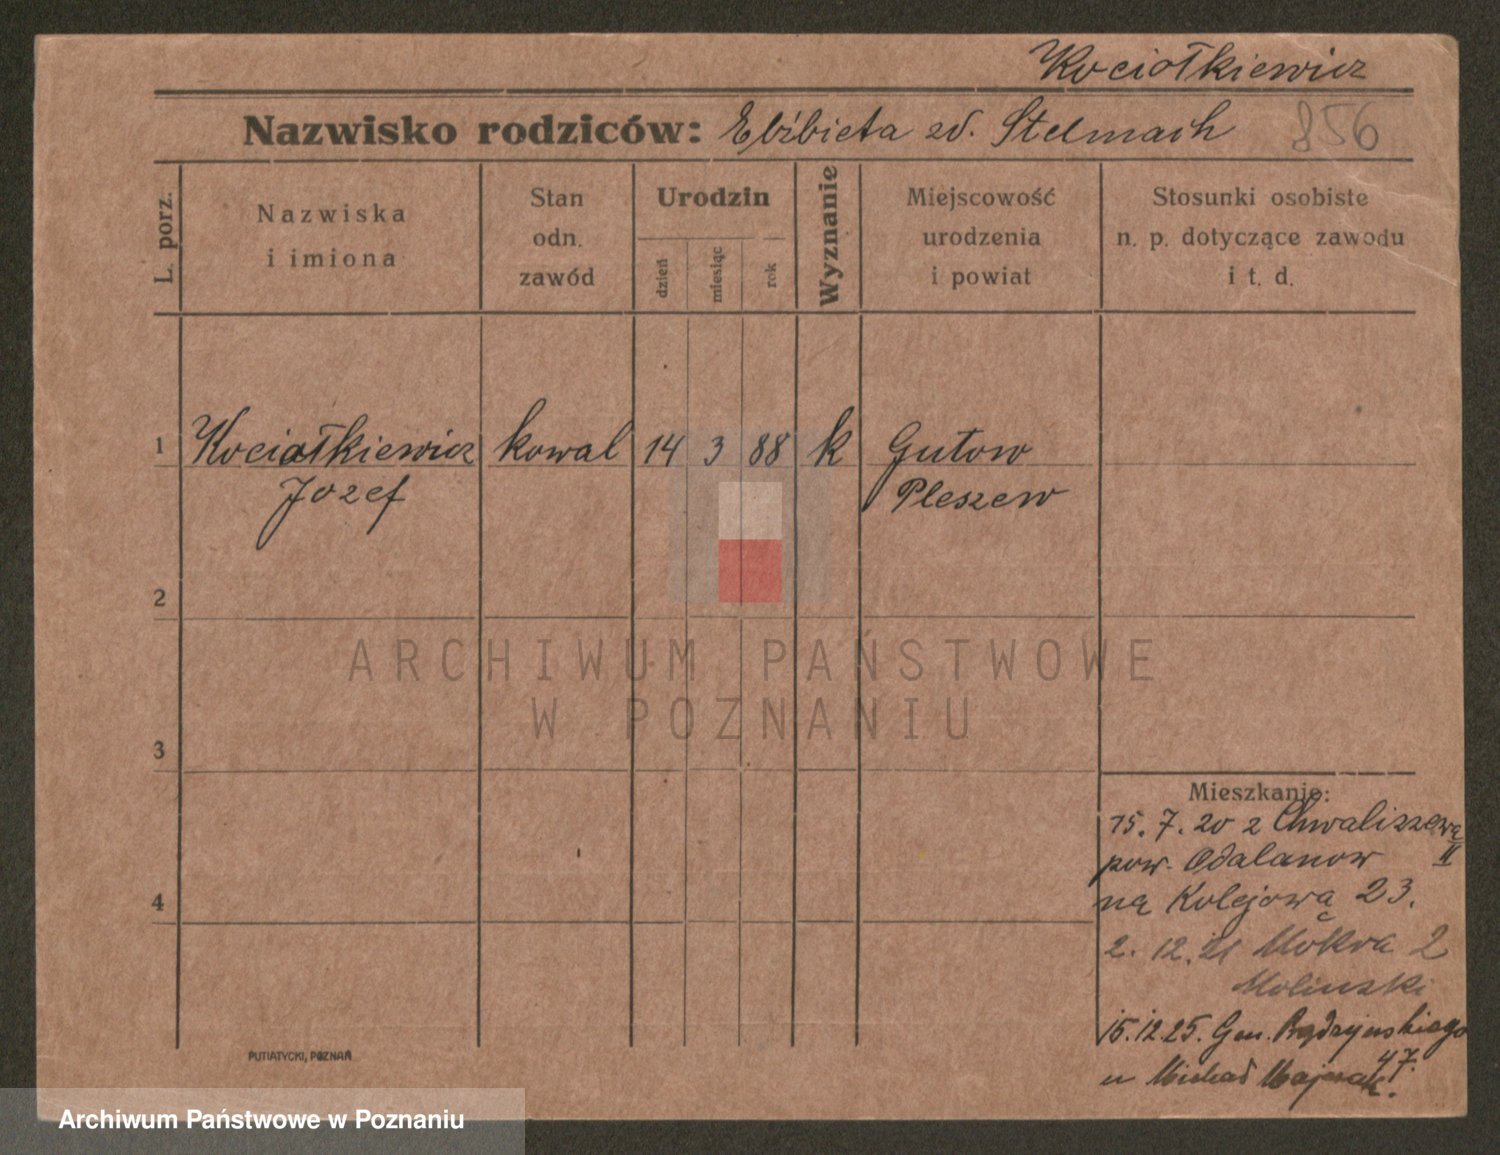 Kociołkiewicz
Nazwisko rodziców: Elżbieta zd. Stelmach 856
L. porz.
Nazwiska
i imiona
Stan
odn.
zawód
Urodzin
dzień
miesiąc
rok
Wyznanie
Miejscowość
urodzenia
i powiat
Stosunki osobiste
n. p. dotyczące zawodu
i t. d.
1 Kociołkiewicz kowal 14 3 88 k Gutow
Józef Pleszew
2
ARCHIWUM PAŃSTWOWE
W POZNANIU
3
Mieszkanie:
15.7.20 z Chwaliszewa
pow. Odalanow II
na Kolejową 23.
2.12.21 Mokra 2
Molinski
15.12.25. Gen. Prądzyńskiego
47.
u Michał
4
PUTIATYCKI, POZNAŃ
Archiwum Państwowe w Poznaniu